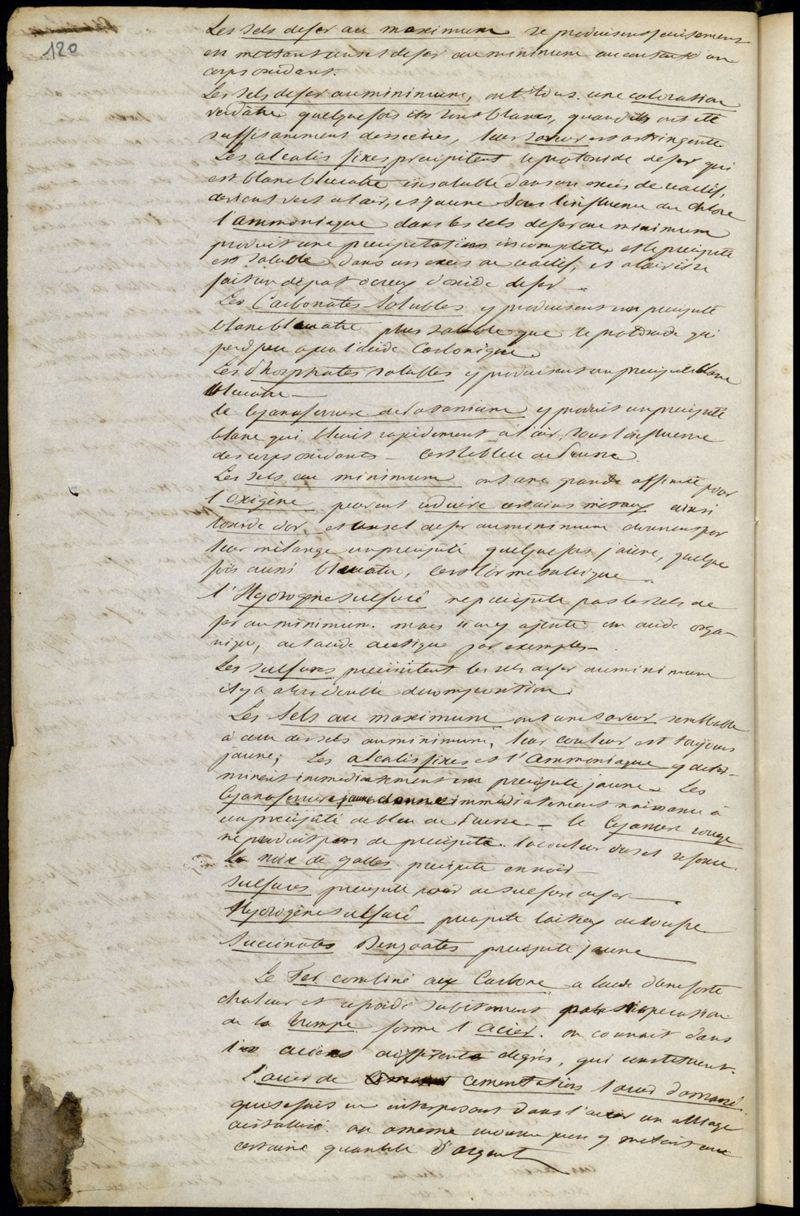 120
Les sels de fer au maximum se produisent facilement
en mettant un sel de fer au minimum au contact d'un
corps oxidant.
Les sels de fer au minimum, ont tous une coloration
verdâtre quelquefois ils sont blancs, quand ils ont été
suffisamment desséchés, leur saveur est astringente
Les alcalis fixes précipitent le protoxide de fer qui
est blanc bleuatre insoluble dans un excès de réactif,
devient vert a l'air, et jaune sous l'influence du chlore
l'ammoniaque dans les sels de fer au minimum
produit une précipitation incomplette, et le précipité
est soluble dans un excès de réactif, et a l'air
fait un dépot ocreux d'oxide de fer
Les Carbonates solubles y produisent un précipité
blanc bleuatre plus soluble que le protoxide qui
perd peu a peu l'acide Carbonique
Les Phosphates solubles y produisent un précipité blanc
bleuatre
le Cyanoferrure de Potassium y produit un précipité
blanc qui bleuit rapidement à l'air, sous l'influence
des corps oxidants - c'est le bleu de Prusse.
Les sels au minimum ont une grande affinité pour
l'oxigène peuvent réduire certains métaux ainsi
d'or, et un sel de fer au minimum donnent par
leur mélange un précipité quelquefois jaune, quelque
fois aussi bleuatre, c'est l'or métallique.
l'Hydrogène sulfuré ne précipite pas les sels de
fer au minimum. mais si on y ajoute un acide orga-
nique, de l'acide acétique par exemple
Les sulfures précipitent les sels de fer au minimum
il y a alors double décomposition
Les Sels au maximum ont une saveur semblable
à ceux des sels au minimum, leur couleur est toujours
jaune; Les alcalis fixes et l'Ammoniaque y déter-
minent immédiatement un précipité jaune. Les
Cyanoferrure jaune donne immédiatement naissance à
un précipité de bleu de Prusse - le Cyanure rouge
ne produit pas de précipité. la couleur du sel se fonce
La noix de galles précipite en noir
sulfures précipité noir de sulfure de fer
Hydrogène sulfuré précipité laiteux de soufre
Succinates Benzoates précipité jaune
Le Fer combiné aux Carbone a l'aide d'une forte
chaleur et refroidi subitement par l'opération
de la trempe forme l'Acier. on connait dans
les aciers différents degrés, qui constituent.
L'acier de cementation l'acier damassé
qui se fait en interposant dans l'acier un alliage
cristallisé. on amène même peu y mettait une
certaine quantité d'argent